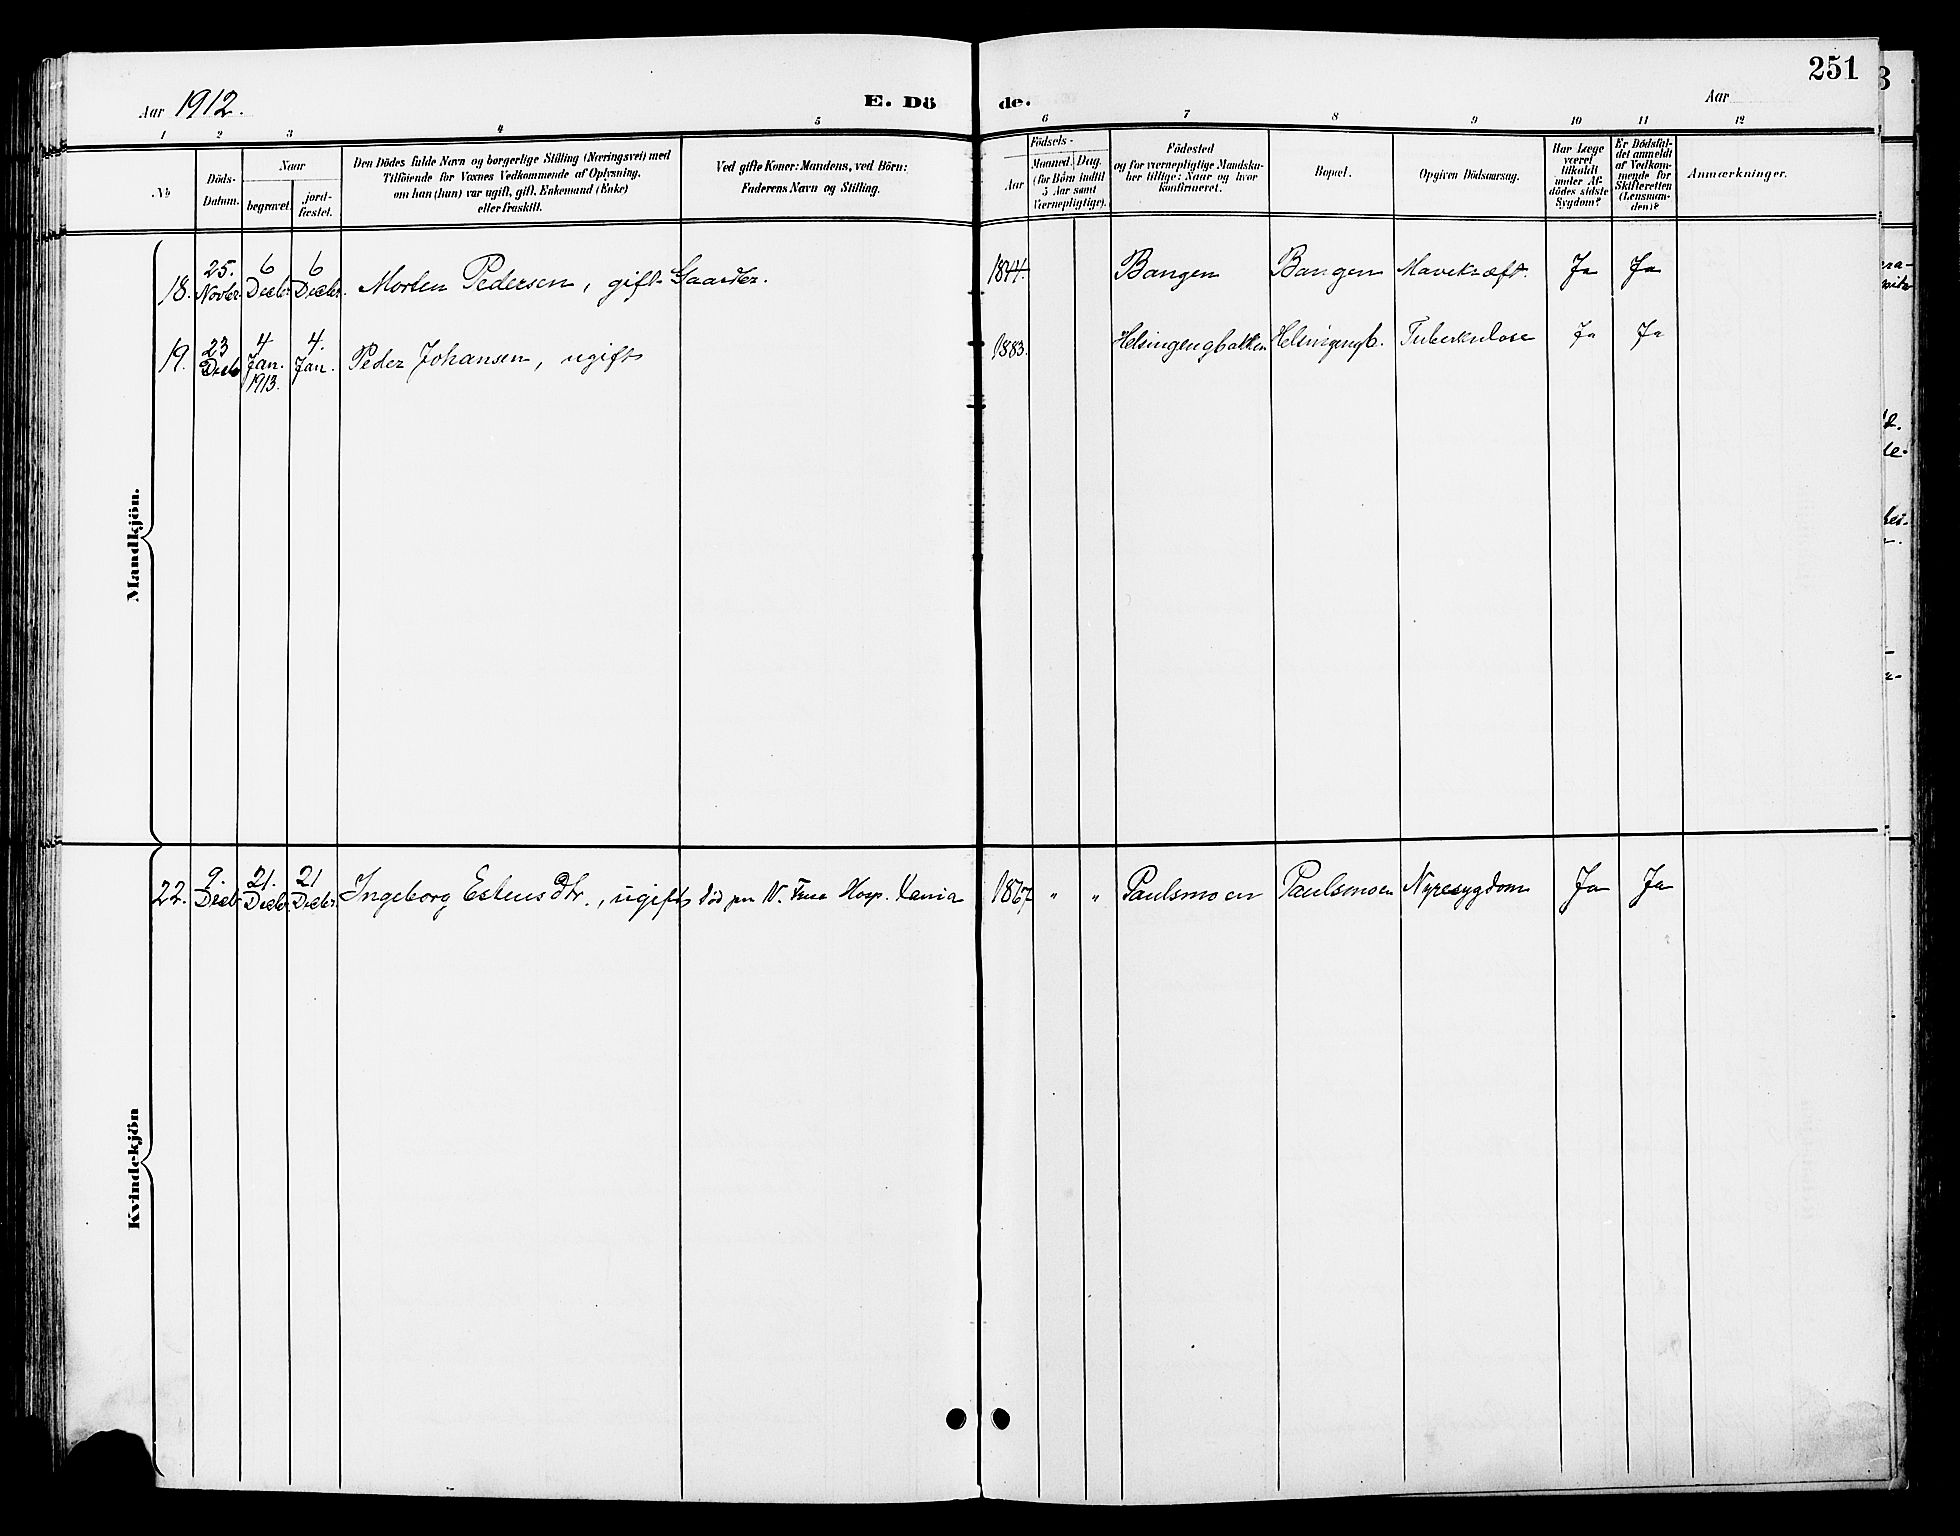 251
Aar 1912.
E. Döde.
Aar
1 2 3 4 5 6 7 8 9 10 11 12
No
Döds-
Datum.
Naar
begravet.
jord-
fæstet.
Den Dödes fulde Navn og borgerlige Stilling (Næringsvei) med
Tilföiende for Voxnes Vedkommende af Oplysning,
om han (hun) var ugift, gift, Enkemand (Enke)
eller fraskilt.
Ved gifte Koner: Mandens, ved Börn:
Faderens Navn og Stilling.
Födsels-
Aar
Maaned. Dag.
(for Börn indtil
5 Aar samt
Værnepligtige).
Födested
og for værnepligtige Mandska-
ber tillige: Naar og hvor
konfirmeret.
Bopæl.
Opgiven Dödsaarsag.
Har Læge
været
tilkaldt
under Af-
dödes sidste
Sygdom?
Er Dödsfal-
det anmeldt
af Vedkom-
mende for
Skifteretten
(Lensman-
den)?
Anmærkninger.
Mandkjön.
18. 25. Novbr. 6 Decbr. 6 Decbr. Morten Pedersen, gift Gaardbr. 1844. Bangen Bangen Mavekræft. Ja Ja
19. 23 Decb 4 Jan. 1913. 4. Jan. Peder Johansen, ugift 1883. Helsingengbakken Helsingengb. Tuberkulose Ja Ja
Kvindekjön
22. 9. Decbr. 21. Decbr. 21 Decbr. Ingeborg Estensdtr., ugift død paa V. Frue Hosp. Xania 1867 " " Paulsmoen Paulsmoen Nyresygdom Ja Ja